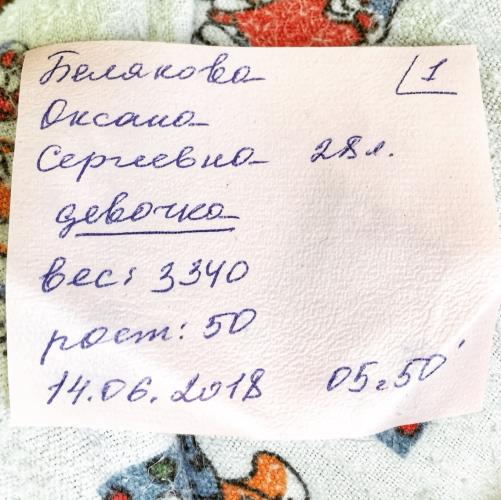 Белякова 1
Оксана
Сергеевна 28 л.
девочка
вес: 3340
рост: 50
14.06.2018 05.50'